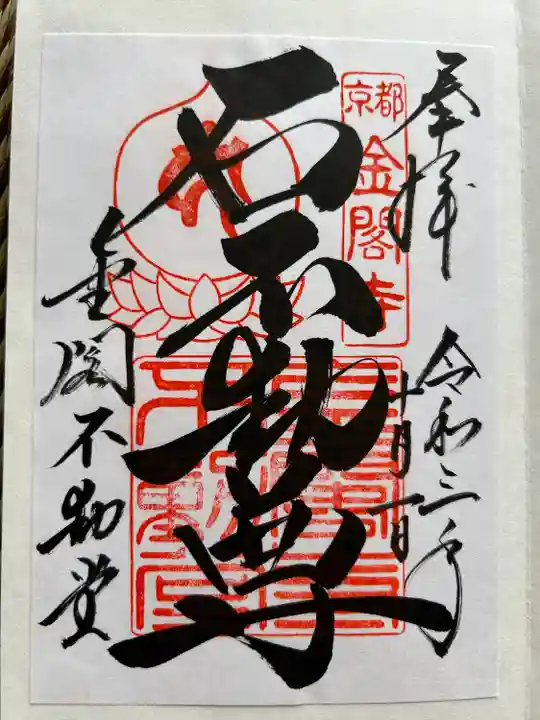 奉拝
令和三年
十月一日
京都
金閣寺
石不動尊
金閣不動堂